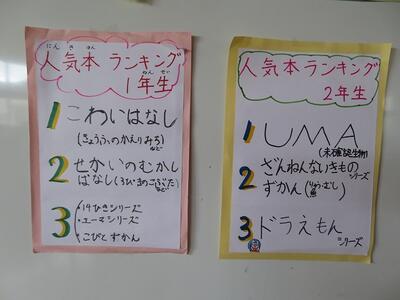 にん き ぼん
人気本ランキング
ねん せい
1年生
1 こわいはなし
(きょうふのかえりみち)
など
2 せかいのむかし
ばなし(3びきのこぶた)
など
3 ・14ひきシリーズ
・エーマシリーズ
・こびとずかん
人気本ランキング
2年生
1 UMA
(未確認生物)
2 ざんねんないきもの
シリーズ
ずかん
3 ドラえもん
シリーズ